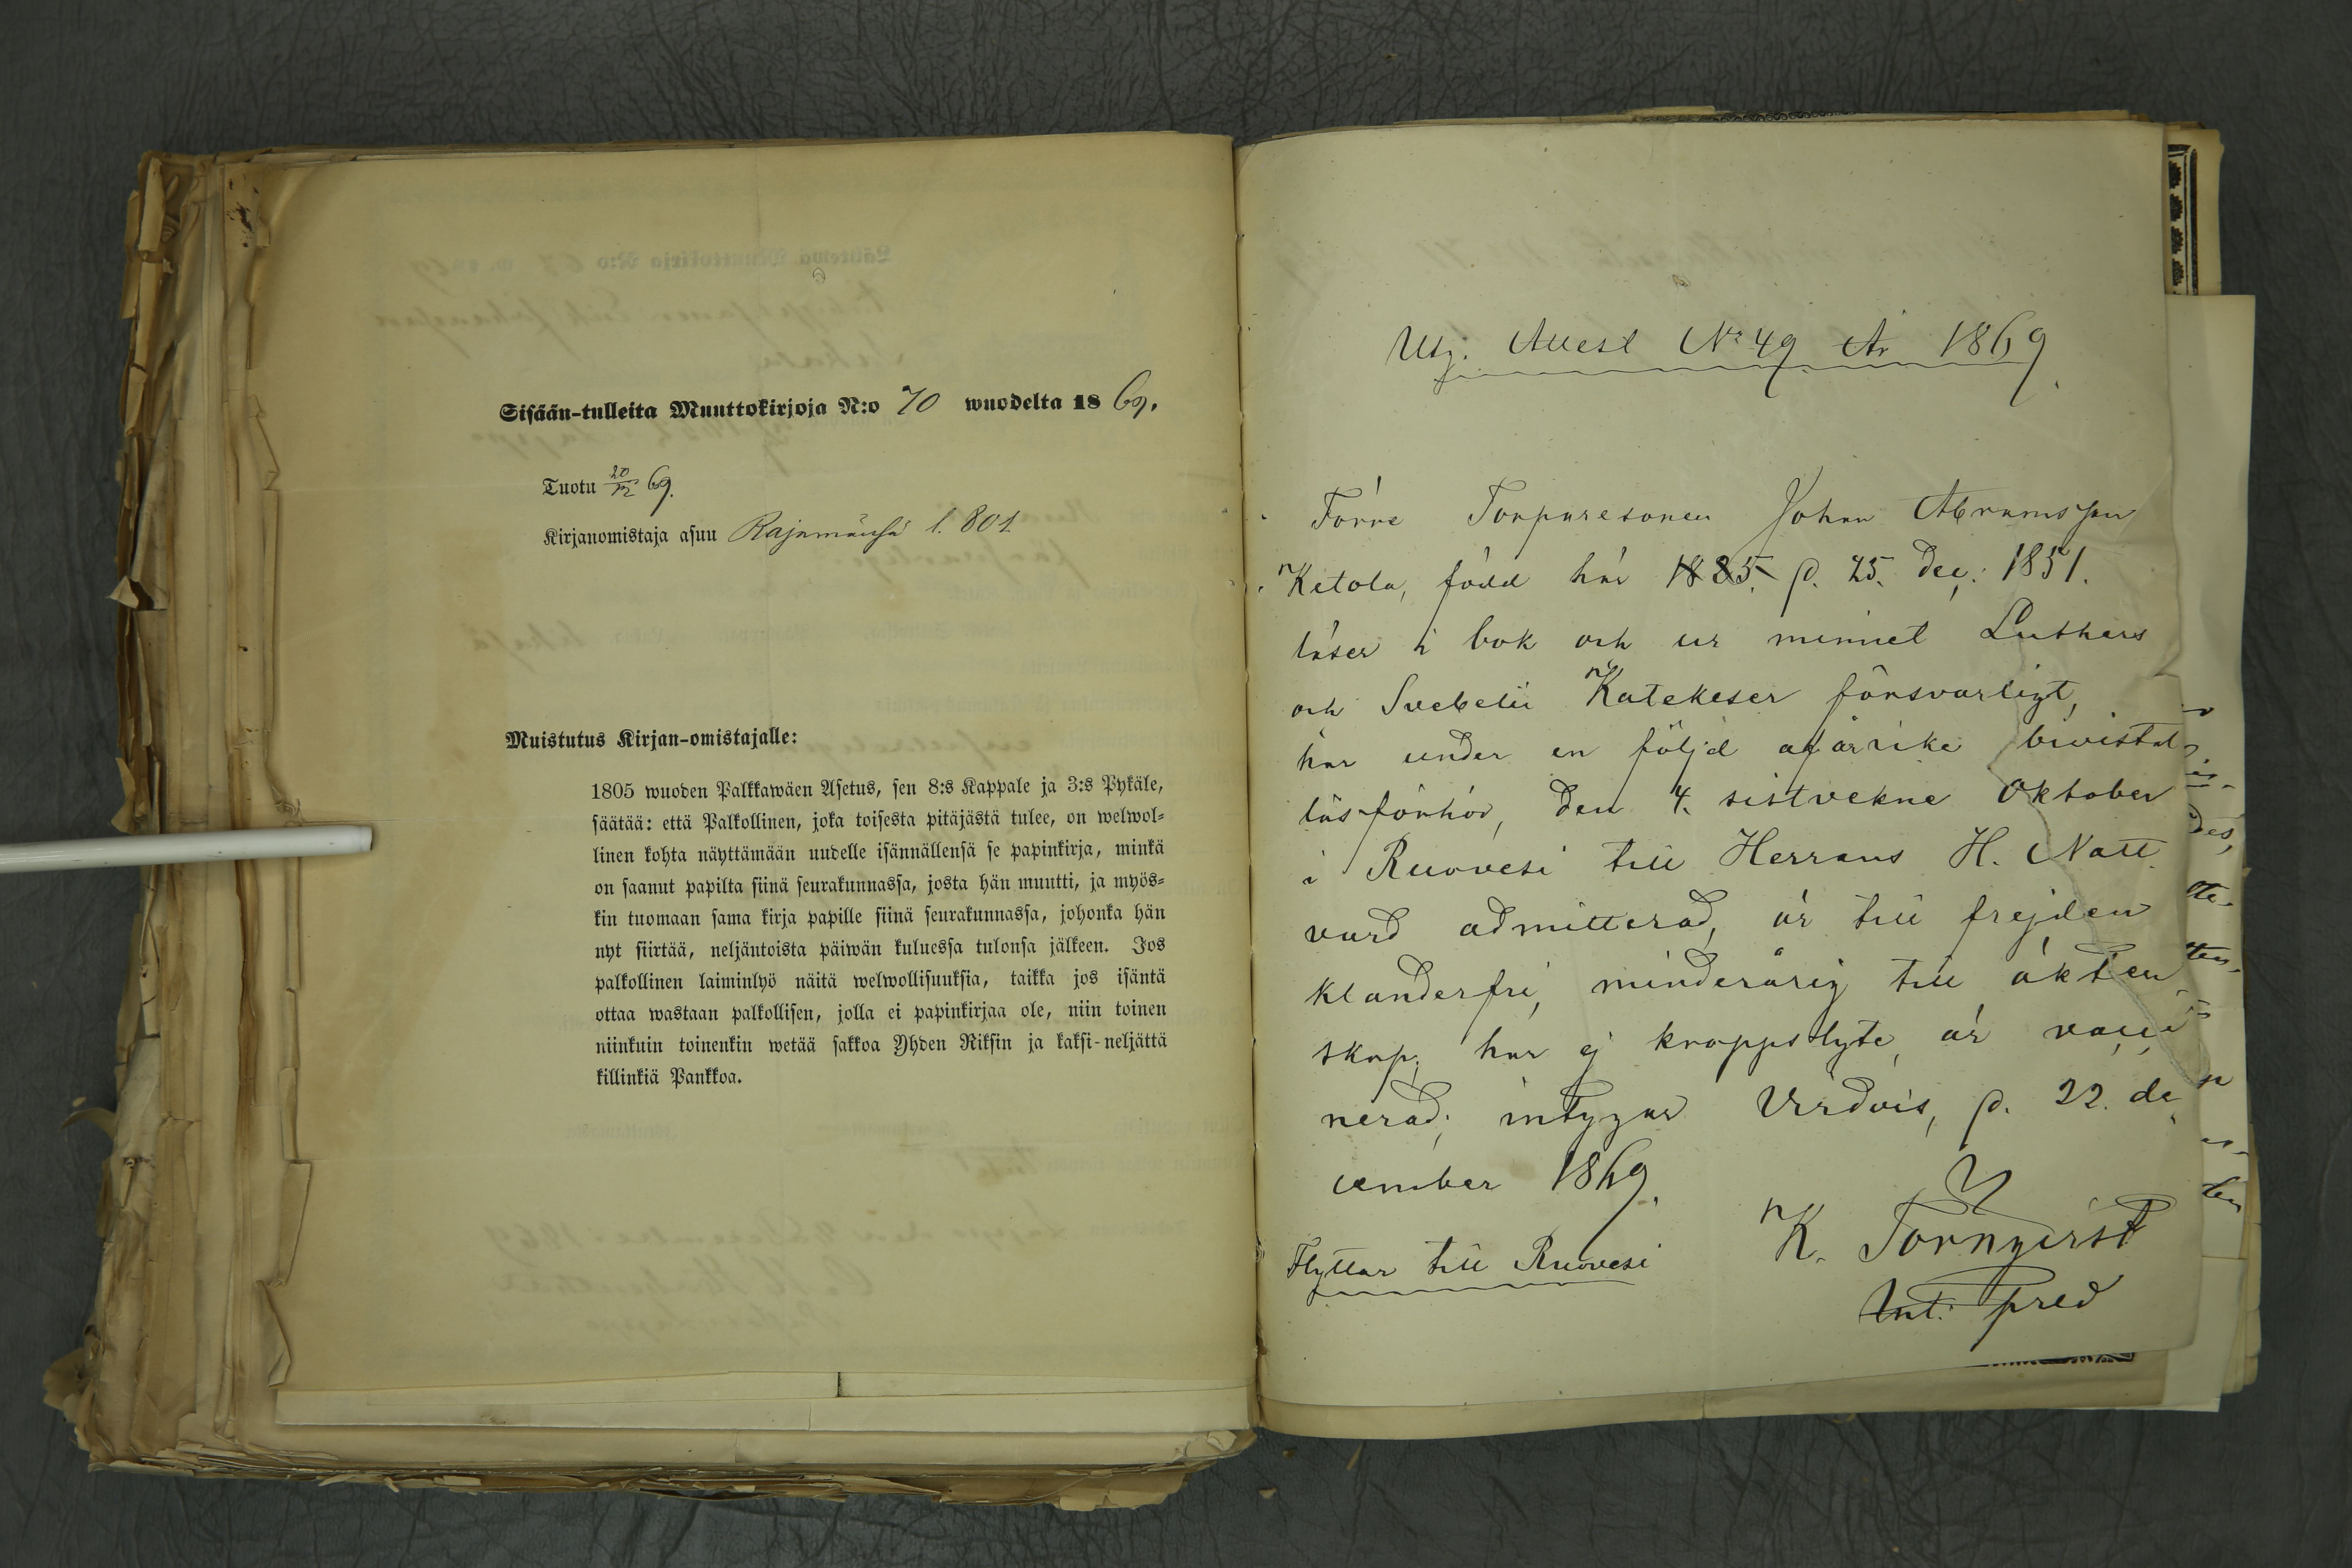 Sisään-tulleita Muuttokirjoja N:o 70 wuodelta 18 69.
Tuotu 20/12 69.
Kirjanomistaja asuu Rajamäensä l. 801
Muistutus Kirjan-omistajalle:
1805 wuoden Palkkawäen Asetus, sen 8:s Kappale ja 3:s Pykäle,
säätää: että Palkollinen, joka toisesta pitäjästä tulee, on welwol-
linen kohta näyttämään uudelle isännällensä se papinkirja, minkä
on saanut papilta siinä seurakunnassa, josta hän muutti, ja myös-
kin tuomaan sama kirja papille siinä seurakunnassa, johonka hän
nyt siirtää, neljäntoista päiwän kuluessa tulonsa jälkeen. Jos
palkollinen laiminlyö näitä welwollisuuksia, taikka jos isäntä
ottaa wastaan palkollisen, jolla ei papinkirjaa ole, niin toinen
niinkuin toinenkin wetää sakkoa Yhden Riksin ja kaksi-neljättä
killinkiä Pankkoa.
Utg. Attest No 49 År 1869.
Förre Torparesonen Johan Abramsson
Ketola, född här 1885. d. 25. Dec: 1851.
läser i bok och ur minnet Luthers
och Svebelii Katekeser försvarligt,
har under en följd af år icke bivistat
läsförhör, den 4. sistvekne Oktober
i Ruovesi till Herrans H. Natt
vard admitterad, är till frejden
klanderfri, minderårig till äkten
skap, har ej kroppslyte, är vacci
nerad; intygar Virdois, d. 22. de
cember 1869.
K. Törnqvist
Int. pred
Flyttar till Ruovesi